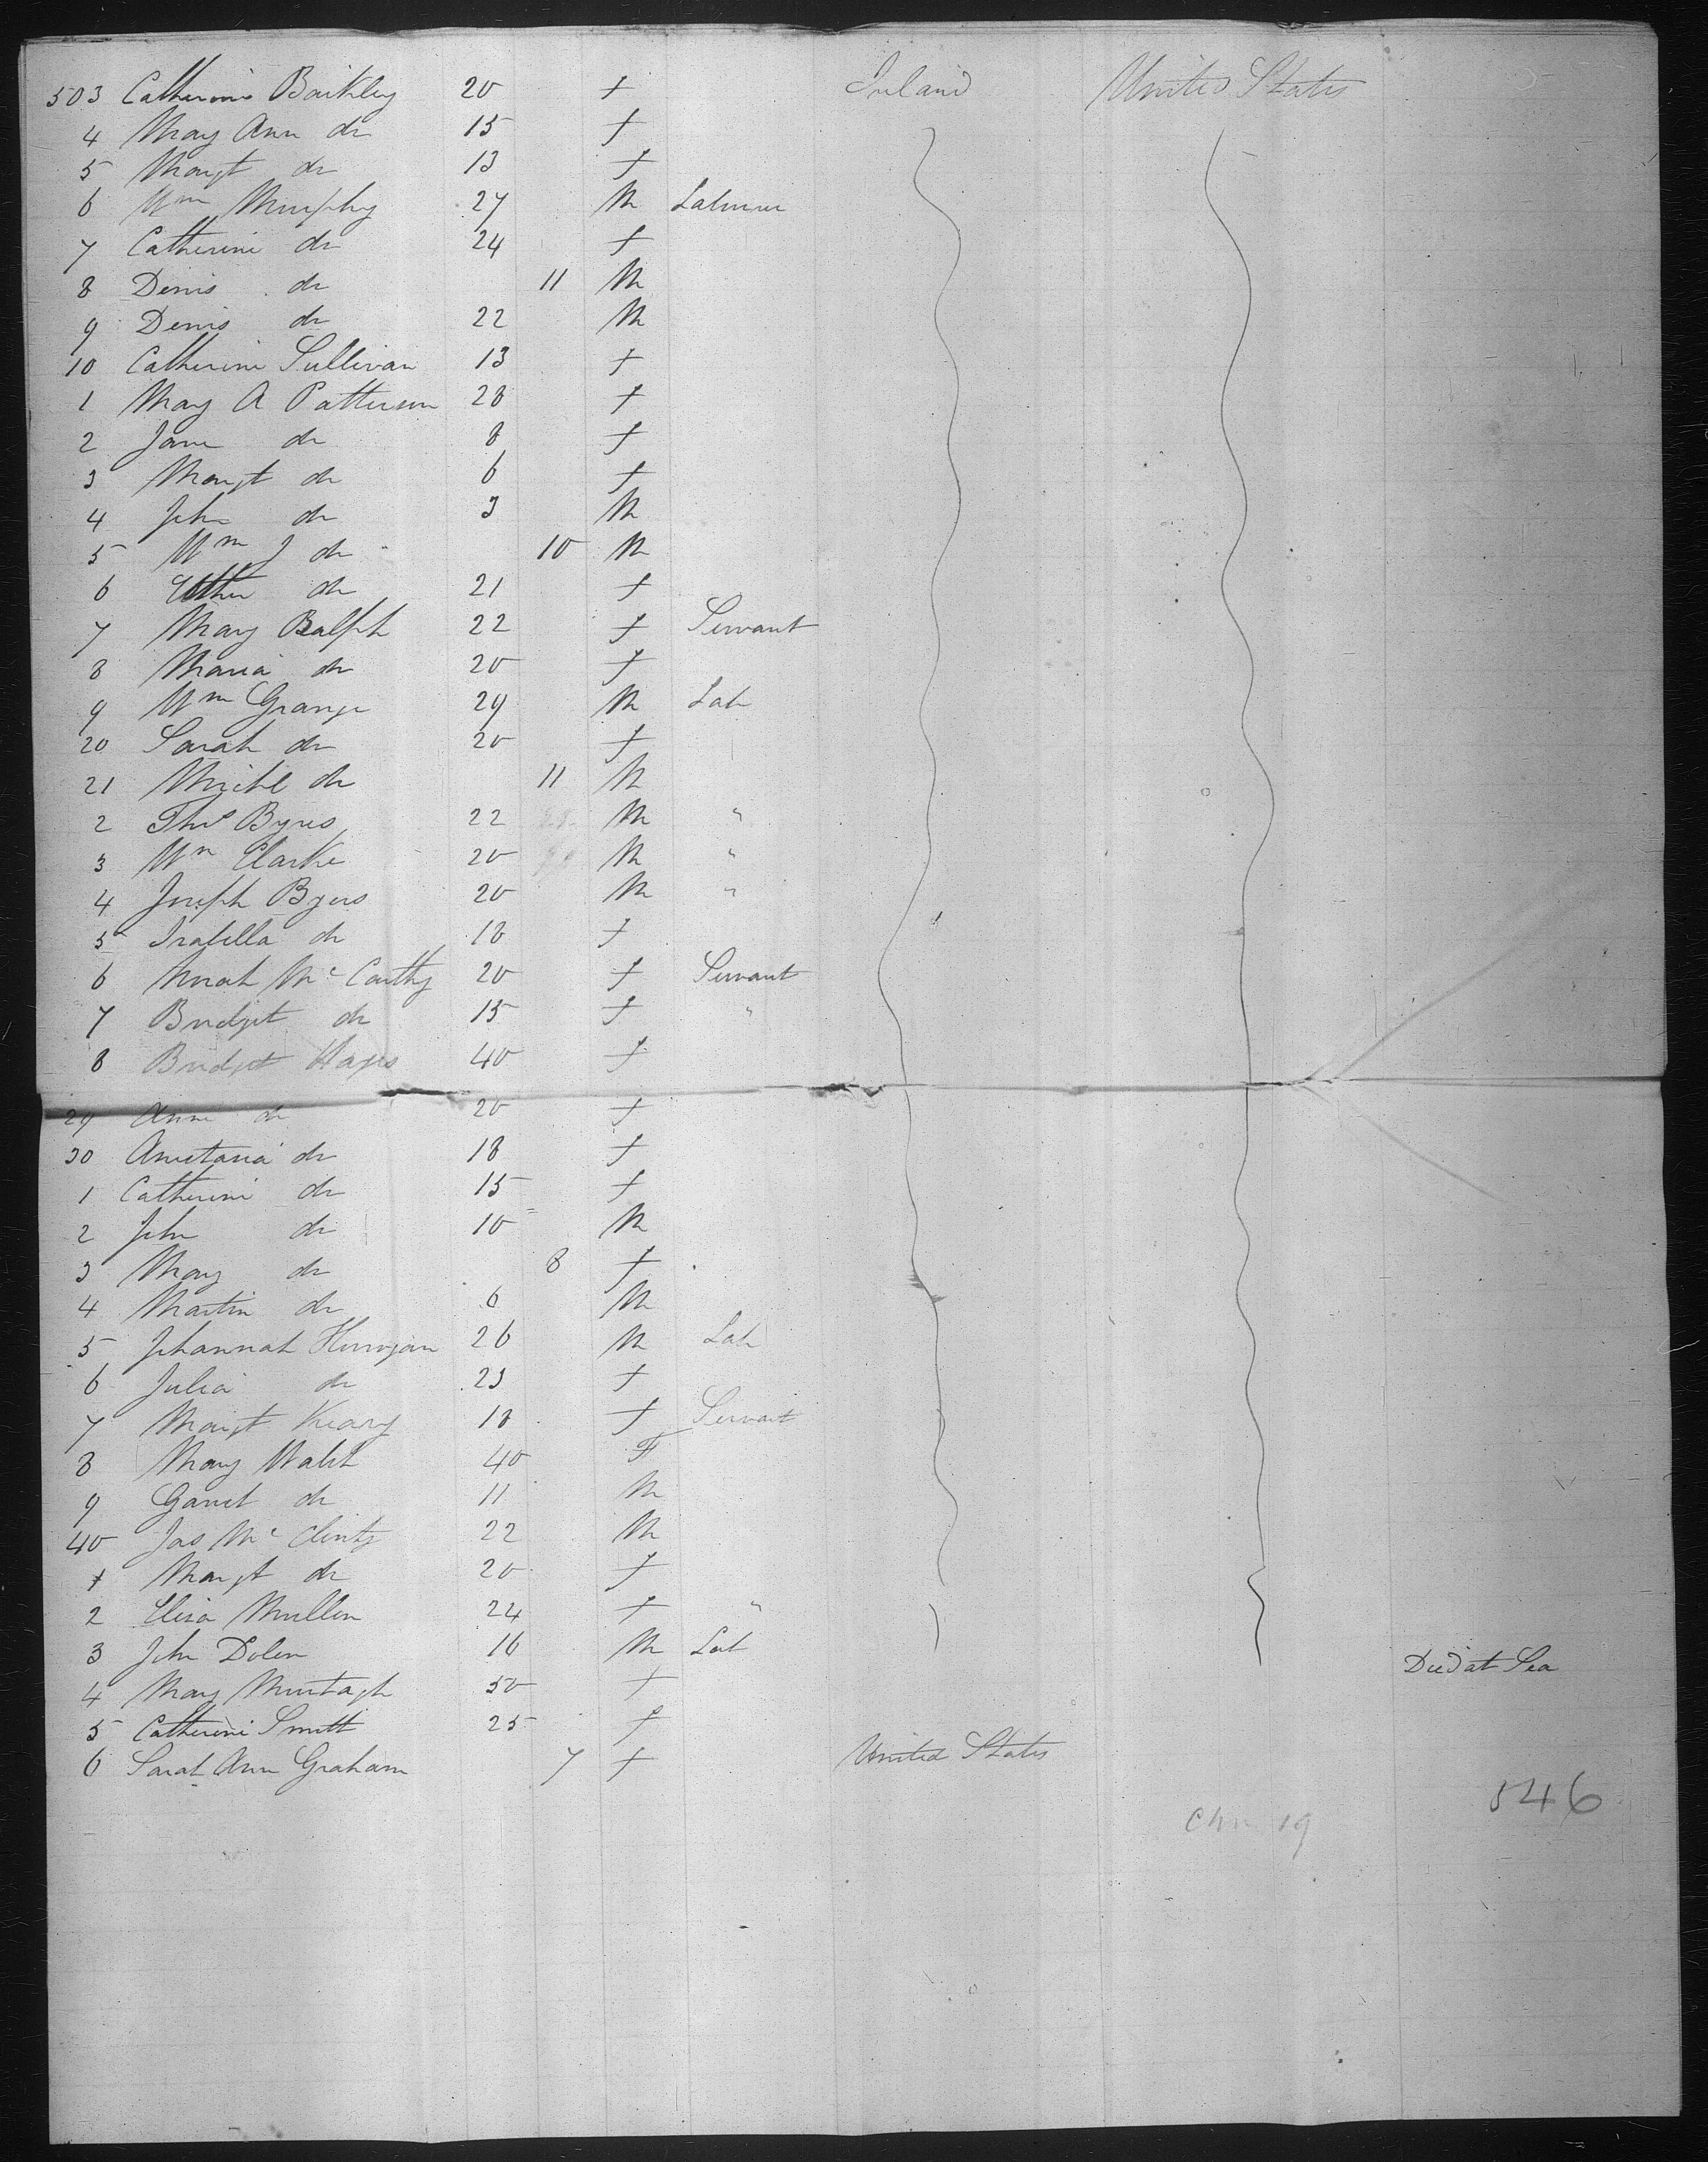 503 Catherine Barkley 20 f Ireland United States
4 Mary Ann do 15 f
5 Margt do 13 f
6 Wm Murphy 27 M Labourer
7 Catherine do 24 f
8 Denis do 11 M
9 Denis do 22 M
10 Catherine Sullivan 13 f
1 Mary A Patterson 28 f
2 Jane do 8 f
3 Margt do 6 f
4 John do 3 M
5 Wm J do 10 M
6 Esther do 21 f
7 Mary Ralph 22 f Servant
8 Maria do 20 f
9 Wm Grange 29 M Lab
20 Sarah do 20 f
21 Michl do 11 M
2 Thos Byres 22 M "
3 Wm Clarke 20 M "
4 Joseph Byers 20 M "
5 Isabella do 18 f
6 Norah McCarthy 20 f Servant
7 Bridget do 15 f "
8 Bridget Hayes 40 f
29 Anne do 20 f
30 Anestasia do 18 f
1 Catherine do 15 f
2 John do 10 M
3 Mary do 8 f
4 Martin do 6 M
5 Johannah 26 M Lab
6 Julia do 23 f
7 Margt Keary 18 f Servant
8 Mary Walsh 40 F
9 Garret do 11 M
40 Jas McClinty 22 M
1 Margt do 20 f
2 Eliza Mullen 24 f "
3 John Dolen 16 M Lab
4 Mary Murtagh 50 f Died at Sea
5 Catherine Smith 25 f
6 Sarah Ann Graham 7 f United States
546
19